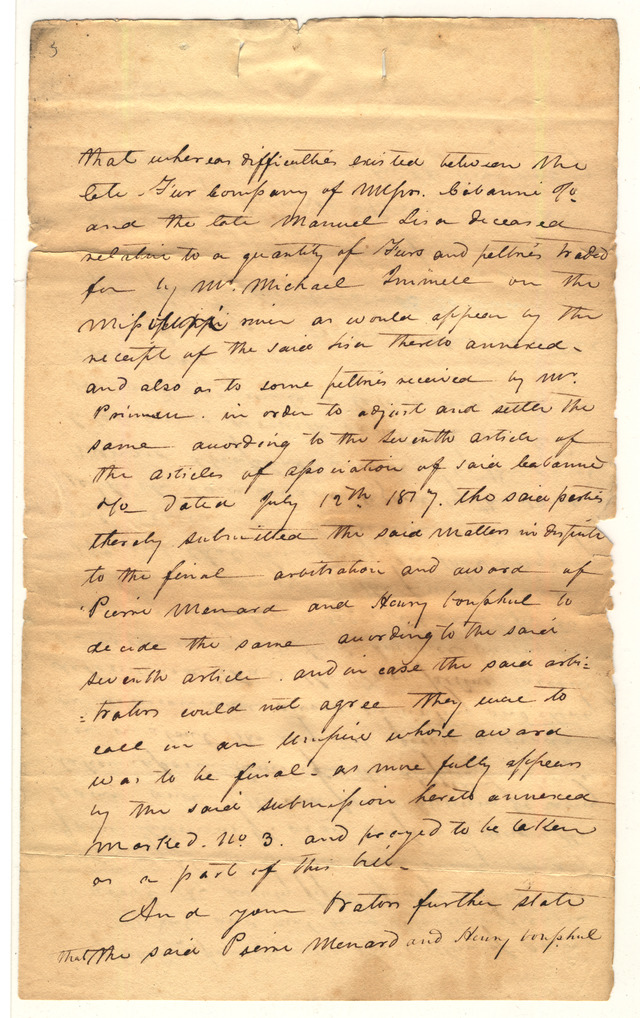 5
that whereas difficulties existed between the
late Fur Company of Messrs. Cabanné &Co
and the late Manuel Lisa deceased
relative to a quantity of Furs and peltries traded
for by Mr. Michael Immell on the
river as would appear by the
receipt of the said Lisa thereto annexed -
and also as to some peltries received by Mr.
in order to adjust and settle the
same according to the seventh article of
the articles of association of said Cabanné
&Co dated July 12th 1817. the said parties
thereby submitted the said matters in dispute
to the final arbitration and award of
Pierre Menard and Henry Vonphul to
decide the same according to the said
seventh article. and in case the said arbi=
=trators could not agree they were to
call in an Umpire whose award
was to be final - as more fully appears
by the said submission hereto annexed
marked. No 3. and prayed to be taken
as a part of this bill -
And your Orators further state
that the said Pierre Menard and Henry Vonphul